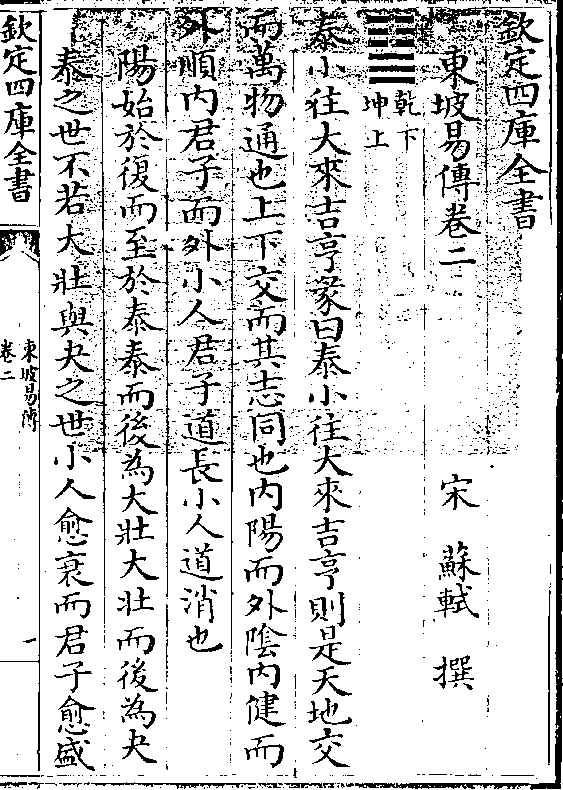 欽定四庫全書
東坡易傳卷二
宋 蘇軾 撰
乾下
坤上
泰小往大來吉亨彖曰泰小往大來吉亨則是天地交
而萬物通也上下交而其志同也内陽而外隂内健而
外順内君子而外小人君子道長小人道消也
陽始於復而至於泰泰而後為大壯大壯而後為夬
泰之世不若大壯與夬之世小人愈衰而君子愈盛
欽定四庫全書
東坡易傳
卷二
一